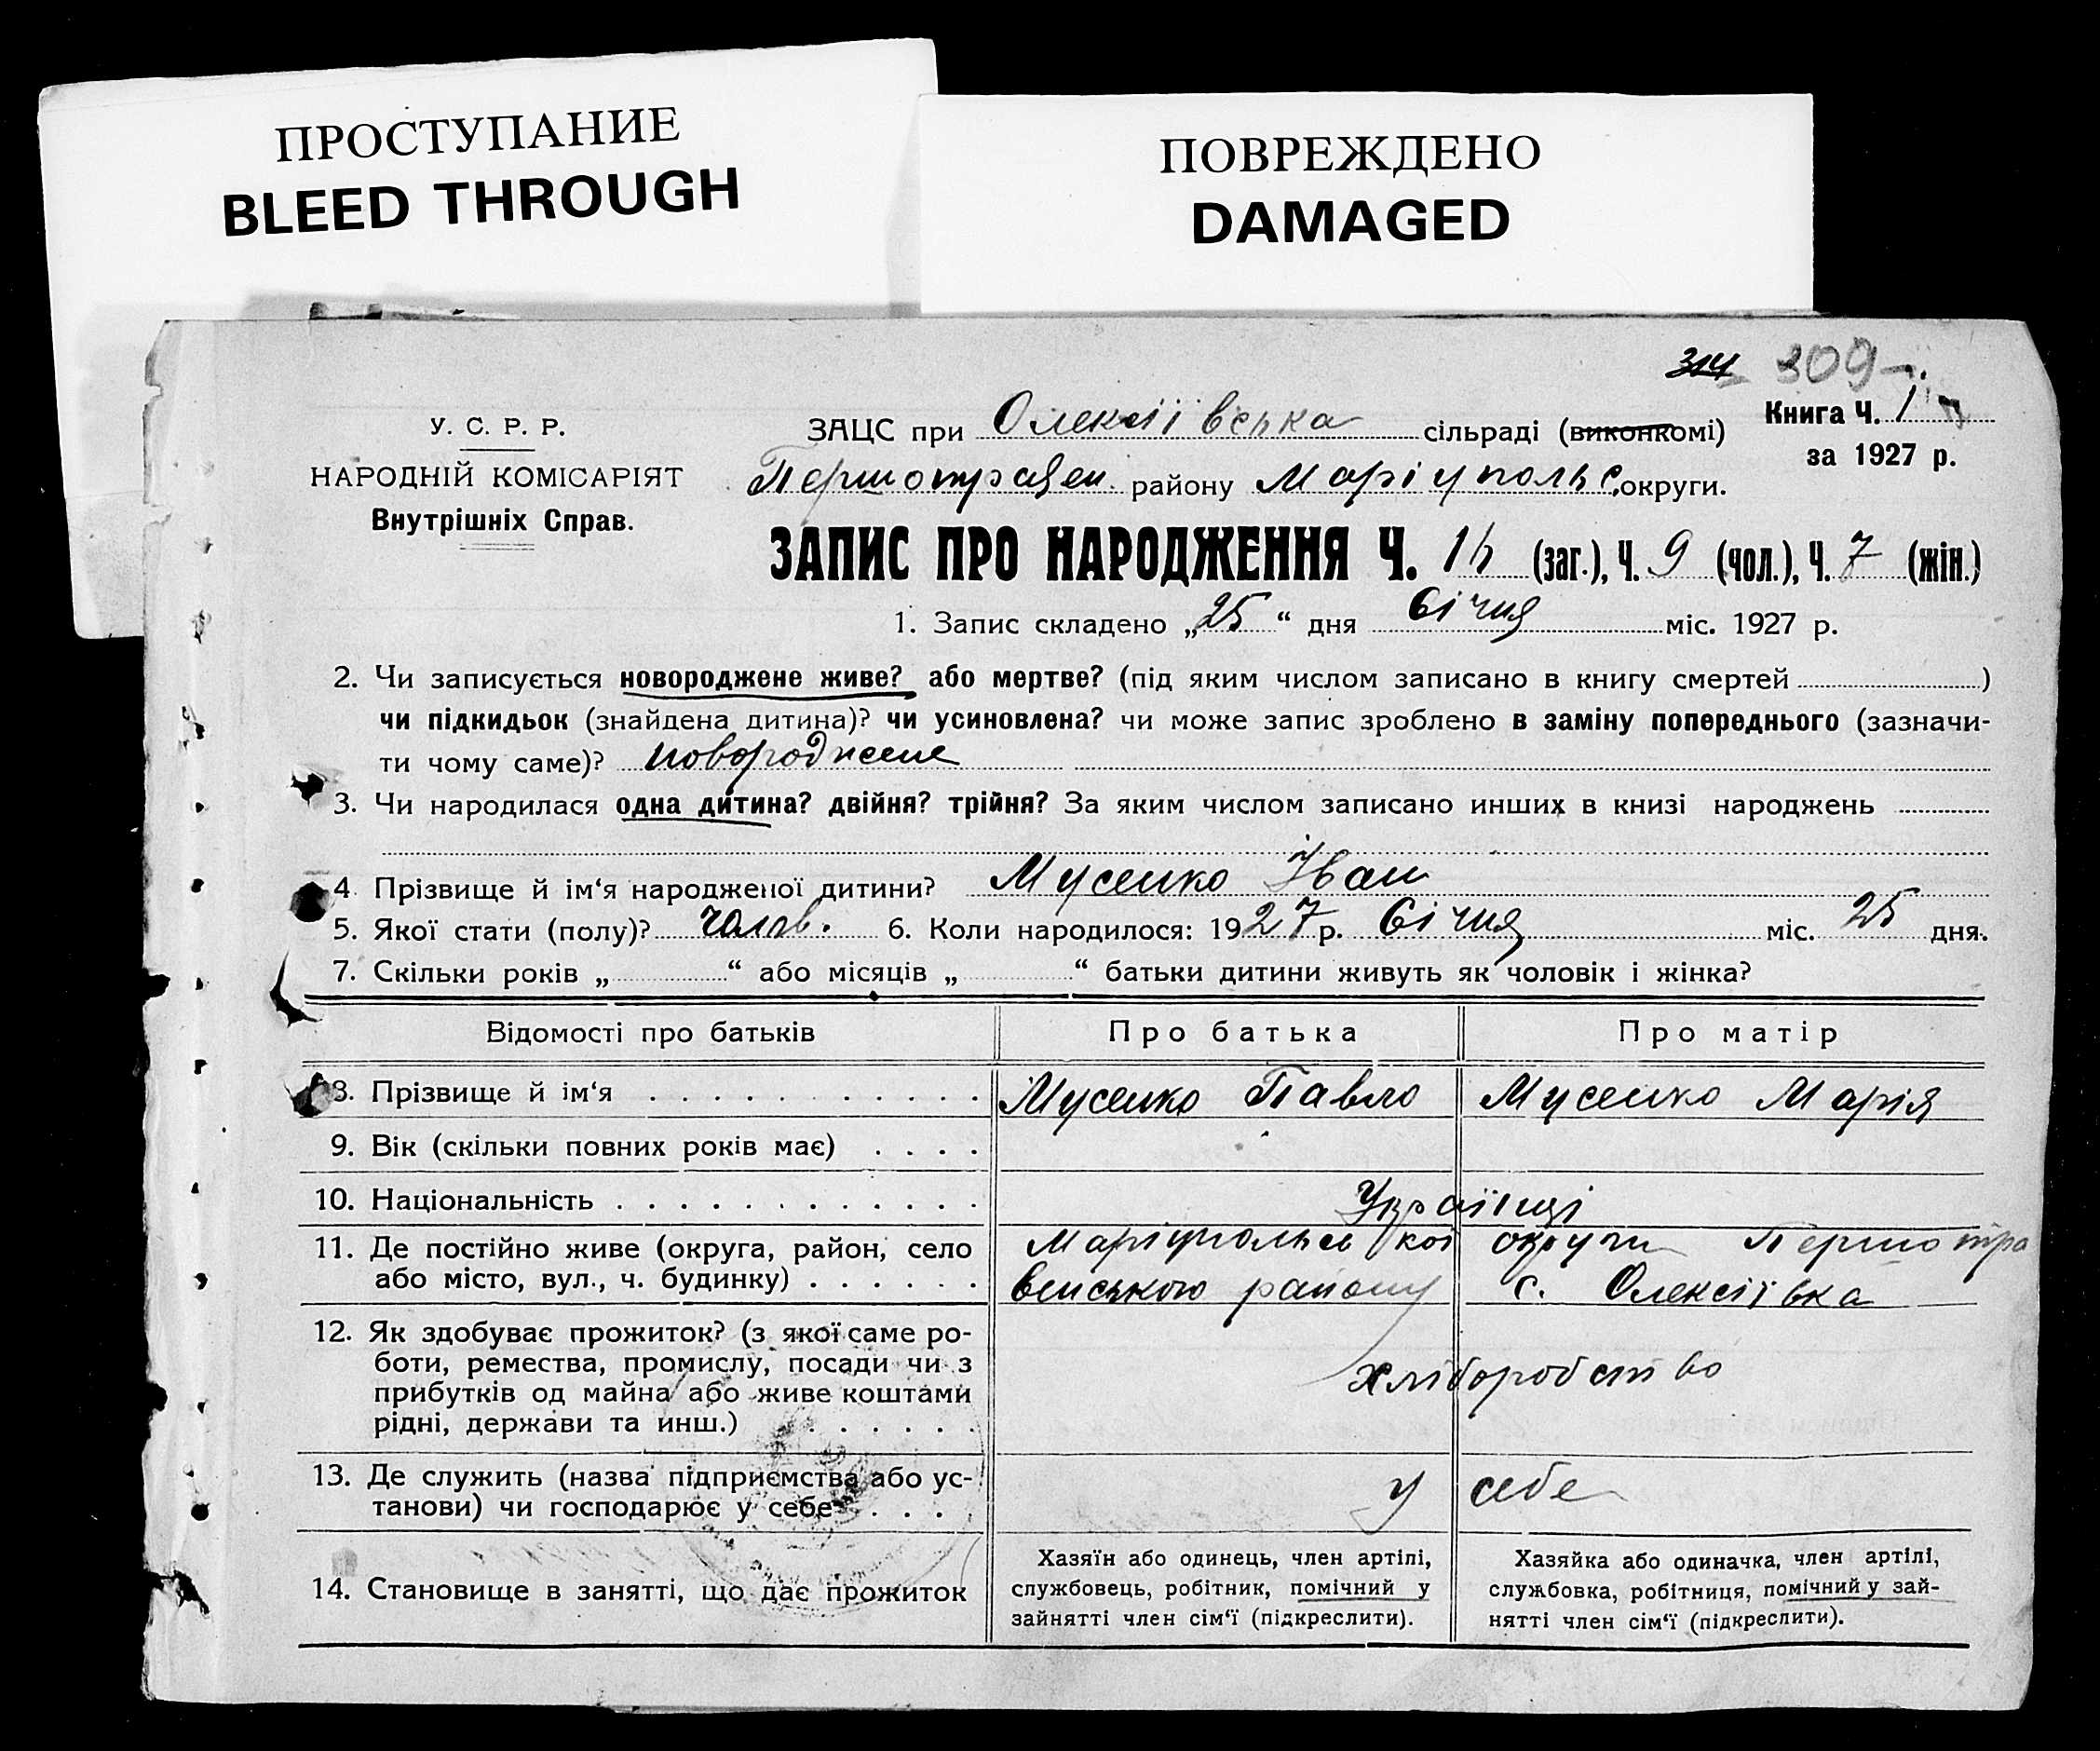 ПРОСТУПАНИЕ
BLEED THROUGH
ПОВРЕЖДЕНО
DAMAGED
314 309
У. С. Р. Р.
НАРОДНІЙ КОМІСАРІЯТ
Внутрішніх Справ.
ЗАЦС при Олексіївська сільраді (виконкомі)
Книга Ч. 1
за 1927 р.
Першотравен. району Маріупольс. округи.
ЗАПИС ПРО НАРОДЖЕННЯ Ч. (заг.), Ч. 9 (чол.), Ч. 7 (жін.)
1. Запис складено „25“ дня Січня міс. 1927 р.
2. Чи записується новороджене живе? або мертве? (під яким числом записано в книгу смертей )
чи підкидьок (знайдена дитина)? чи усиновлена? чи може запис зроблено в заміну попереднього (зазначи-
ти чому саме)? новороджене
3. Чи народилася одна дитина? двійня? трійня? За яким числом записано инших в книзі народжень
4. Прізвище й ім‘я народженої дитини? Мусенко Іван
5. Якої стати (полу)? чолов. 6. Коли народилося: 1927 р. Січня міс. 25 дня.
7. Скільки років „ “ або місяців „ “ батьки дитини живуть як чоловік і жінка?
Відомості про батьків Про батька Про матір
8. Прізвище й ім‘я Мусенко Павло Мусенко Марія
9. Вік (скільки повних років має)
10. Національність Українці
11. Де постійно живе (округа, район, село Маріупольської округи Першотра
або місто, вул., ч. будинку) венського району с. Олексіївка
12. Як здобуває прожиток? (з якої саме ро-
боти, ремества, промислу, посади чи з
прибутків од майна або живе коштами
рідні, держави та инш.) хліборобство
13. Де служить (назва підприємства або ус-
танови) чи господарює у себе у себе
14. Становище в занятті, що дає прожиток
Хазяїн або одинець, член артілі,
службовець, робітник, помічний у
зайнятті член сім‘ї (підкреслити).
Хазяйка або одиначка, член артілі,
службовка, робітниця, помічний у зай-
нятті член сім‘ї (підкреслити).